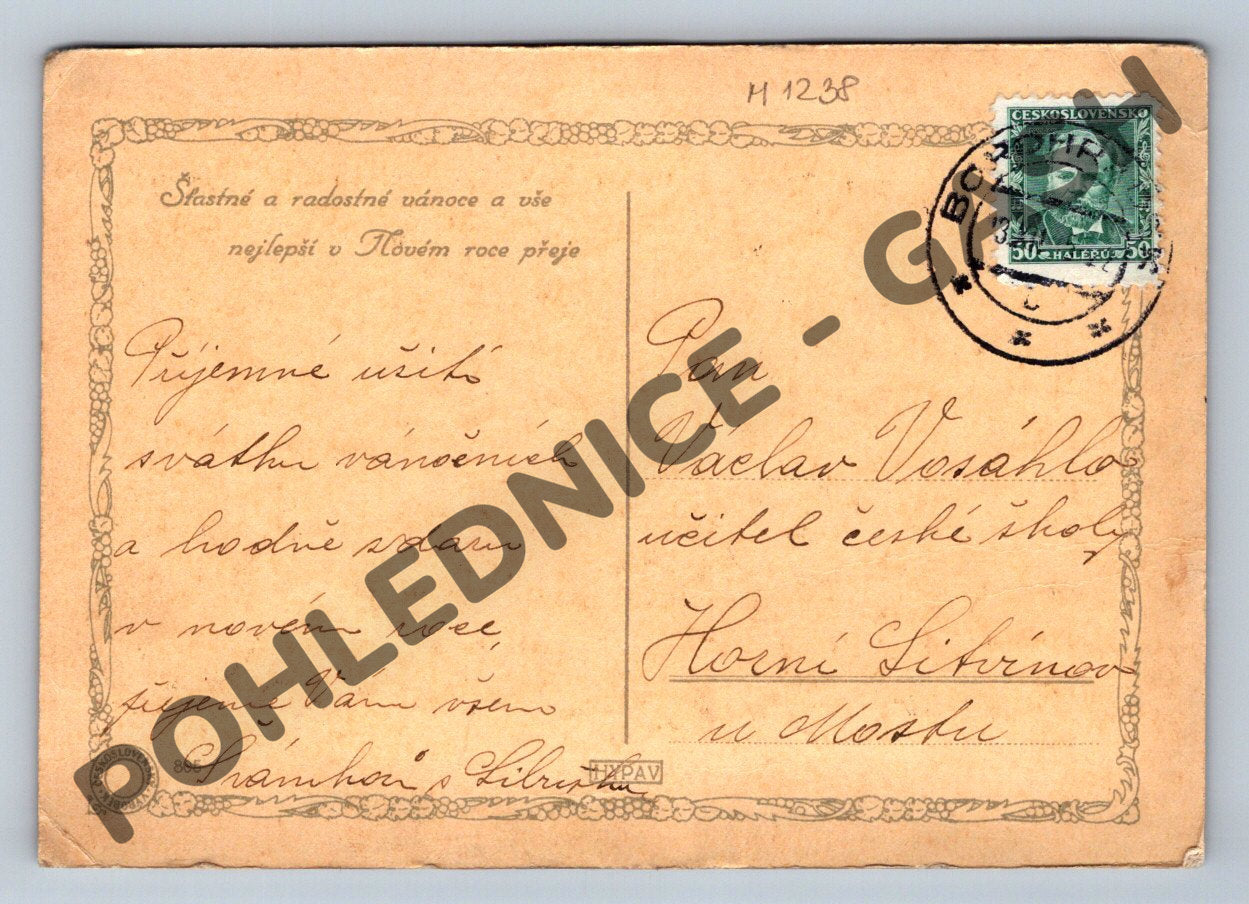 M 1238
ČESKOSLOVENSKO
50 HALÉŘŮ 50
Šťastné a radostné vánoce a vše
nejlepší v Novém roce přeje
Příjemné užití
svátků vánočních
a hodně zdaru
v novém roce
přejeme Vám všem
s Libuškou
Pan
Václav Vosáhlo
učitel české školy
Horní Litvínov
u Mostu
HYPAV
POHLEDNICE - GARCH